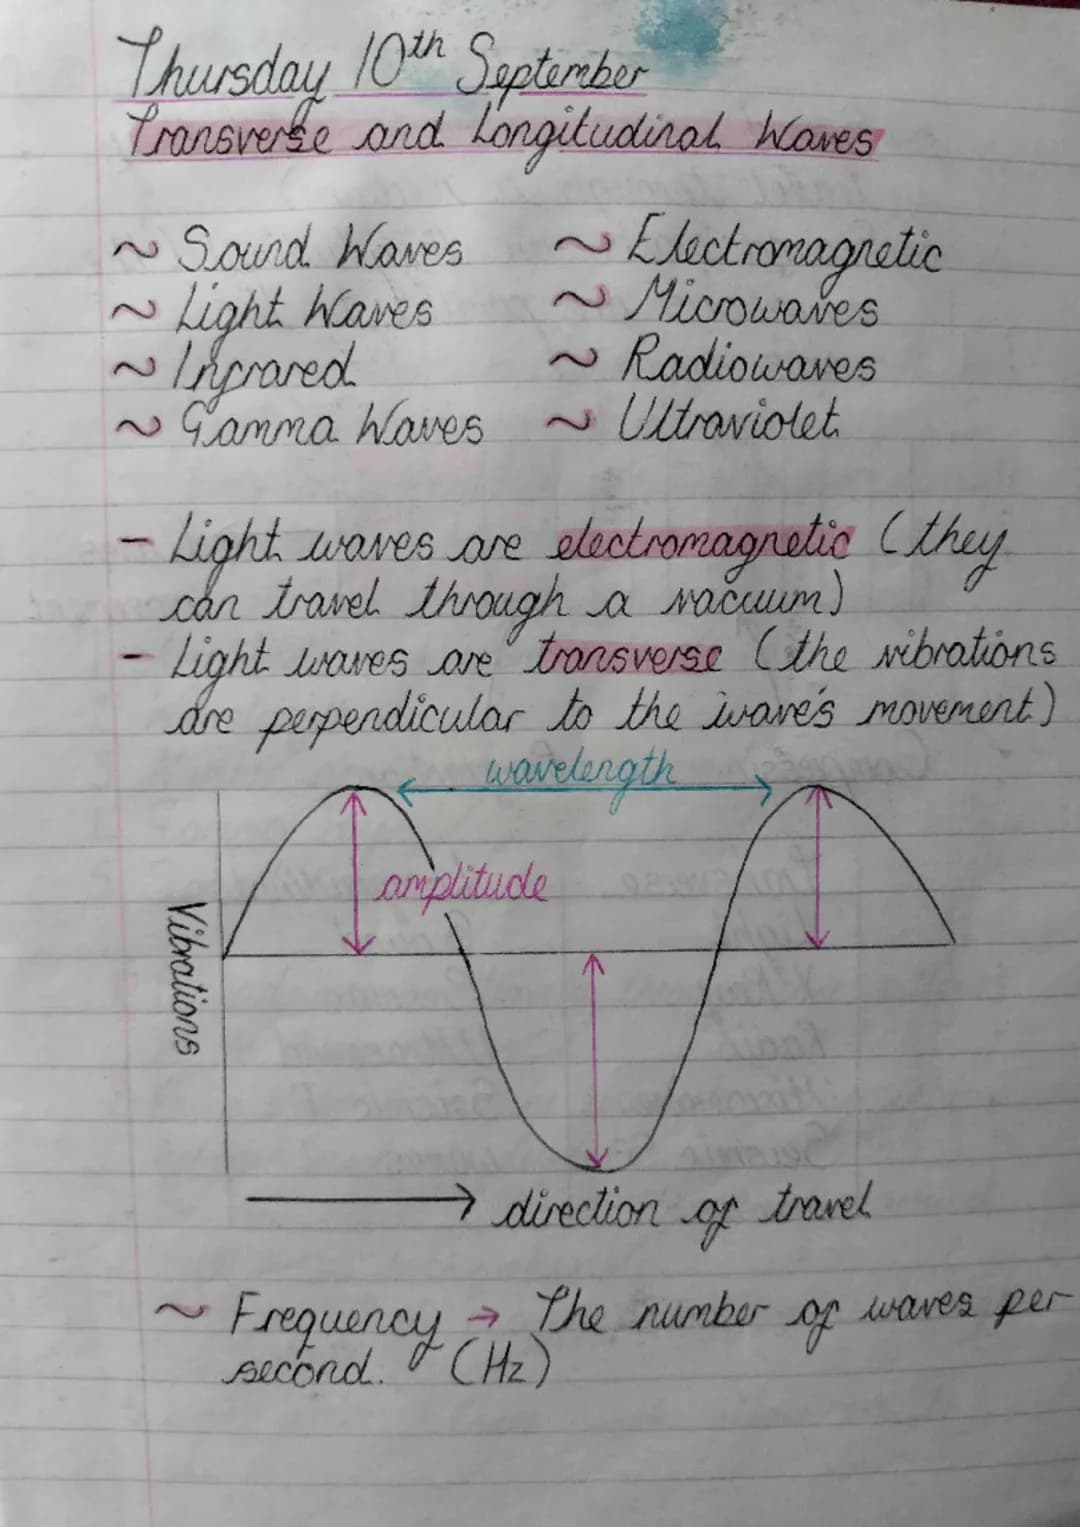 Thursday 10th September
Transverse and Longitudinal Waves
~ Sound Waves
~ Light Waves
~ Infrared
~ Gamma Waves
~ Electromagnetic
~ Microwaves
~ Radiowaves
~ Ultraviolet
- Light waves are electromagnetic (they
can travel through a vacuum)
- Light waves are transverse (the vibrations
are perpendicular to the wave's movement)
wavelength
amplitude
Vibrations
→ direction of travel
~ Frequency → The number of waves per
second. (Hz)